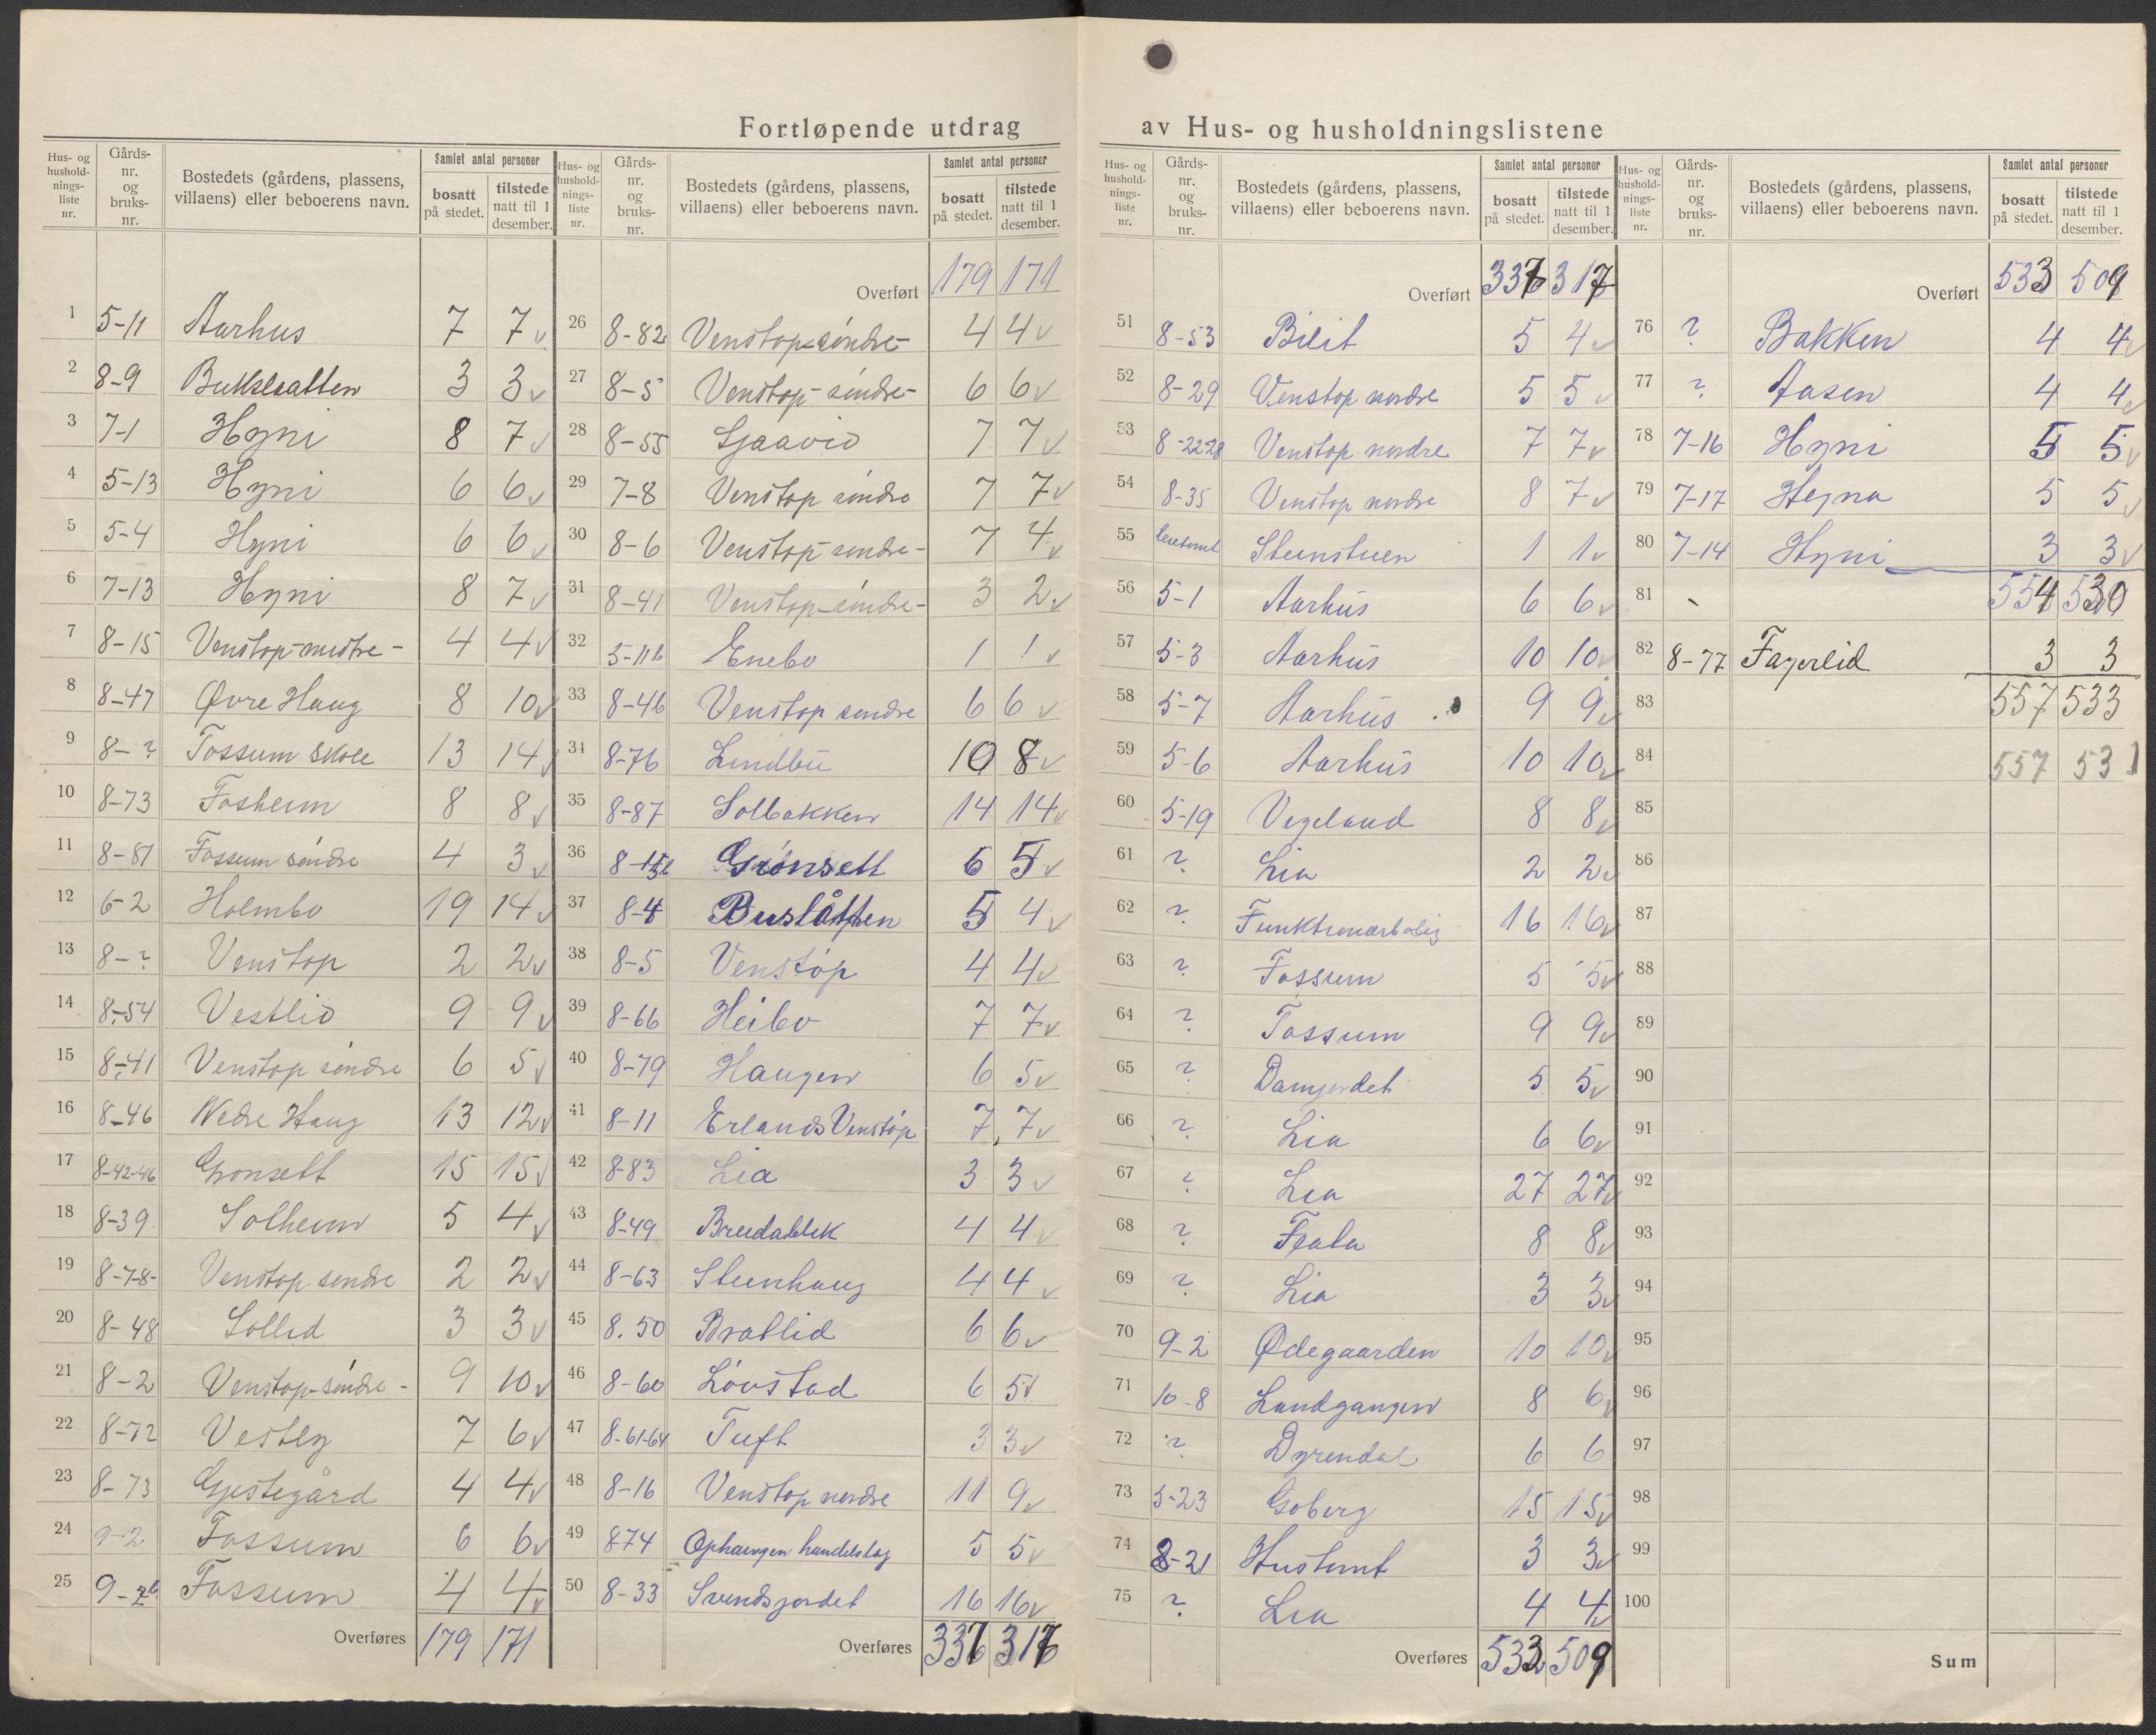 Fortløpende utdrag av Hus- og husholdningslistene
Hus- og husholdnings- liste nr. | Gårds- nr. og bruks- nr. | Bostedets (gårdens, plassens, villaens) eller beboerens navn. | Samlet antal personer | bosatt på stedet. | tilstede natt til 1 desember.
1 5-11 Aarhus 7 7
2 8-9 Bukslaatten 3 3
3 7-1 Hyni 8 7
4 5-13 Hyni 6 6
5 5-4 Hyni 6 6
6 7-13 Hyni 8 7
7 8-15 Venstop-mestre- 4 4
8 8-47 Øvre Haug 8 10
9 8-? Fossum skole 13 14
10 8-73 Fosheim 8 8
11 8-81 Fossum söndre 4 3
12 6-2 Holmbo 19 14
13 8-? Venstop 2 2
14 8-54 Vestlid 9 9
15 8-41 Venstop söndre 6 5
16 8-46 Nedre Haug 13 12
17 8-42-46 Gronsett 15 15
18 8-39 Solheim 5 4
19 8-7-8- Venstop sendre 2 2
20 8-48 Sollid 3 3
21 8-2 Venstop-söndre- 9 10
22 8-72 Vestly 7 6
23 8-73 Gjestegård 4 4
24 9-2 Fossum 6 6
25 9- Fossum 4 4
Overføres 179 171
Hus- og husholdnings- liste nr. | Gårds- nr. og bruks- nr. | Bostedets (gårdens, plassens, villaens) eller beboerens navn. | Samlet antal personer | bosatt på stedet. | tilstede natt til 1 desember.
Overført 179 171
26 8-82 Venstop-söndre- 4 4
27 8-5 Venstop-söndre- 6 6
28 8-55 7 7
29 7-8 Venstop söndre 7 7
30 8-6 Venstop-sendre- 7 4
31 8-41 Venstop-söndre- 3 2
32 5-11b Enebo 1 1
33 8-46 Venstop sendre 6 6
34 8-76 Lindbü 10 8
35 8-87 Solbakken 14 14
36 Grönsett 6 5
37 8-4 Buslåtten 5 4
38 8-5 Venstöp 4 4
39 8-66 Heibo 7 7
40 8-79 Haugen 6 5
41 8-11 Erlands Venstöp 7 7
42 8-83 Lia 3 3
43 8-49 Breidablik 4 4
44 8-63 Steenhaug 4 4
45 8.50 Bratlid 6 6
46 8-60 Lövstad 6 5
47 8-61-64 Tuft 3 3
48 8-16 Venstop nordre 11 9
49 874 Ophaugen handelslag 5 5
50 8-33 Svendsjordet 16 16
Overføres 337 317
Hus- og husholdnings- liste nr. | Gårds- nr. og bruks- nr. | Bostedets (gårdens, plassens, villaens) eller beboerens navn. | Samlet antal personer | bosatt på stedet. | tilstede natt til 1 desember.
Overført 337 317
51 8-53 Bilit 5 4
52 8-29 Venstop nordre 5 5
53 8-22-28 Venstop nordre 7 7
54 8-35 Venstop nordre 8 7
55 Steinstuen 1 1
56 5-1 Aarhus 6 6
57 5-3 Aarhüs 10 10
58 5-7 Aarhüs 9 9
59 5-6 Aarhüs 10 10
60 5-19 Vegeland 8 8
61 ? Lia 2 2
62 ? Funktionærbolig 16 16
63 ? Fossum 5 5
64 ? Fossum 9 9
65 ? Damjordet 5 5
66 ? Lia 6 6
67 ? Lia 27 27
68 ? 8 8
69 ? Lia 3 3
70 9-2 Ødegaarden 10 10
71 10-8 Lundgangen 8 6
72 ? Dyrendal 6 6
73 5-23 Goberg 15 15
74 8-21 Hustomt 3 3
75 ? Lia 4 4
Overføres 533 509
Hus- og husholdnings- liste nr. | Gårds- nr. og bruks- nr. | Bostedets (gårdens, plassens, villaens) eller beboerens navn. | Samlet antal personer | bosatt på stedet. | tilstede natt til 1 desember.
Overført 533 509
76 ? Bakken 4 4
77 ? Aasen 4 4
78 7-16 Hyni 5 5
79 7-17 Hegna 5 5
80 7-14 Hyni 3 3
81 554 530
82 8-77 Fagerlid 3 3
83 557 533
84 557 531
85
86
87
88
89
90
91
92
93
94
95
96
97
98
99
100
Sum